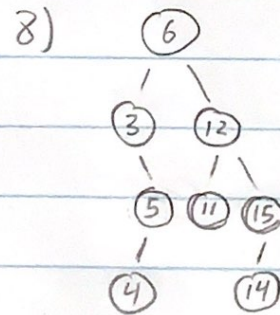 8) 6
3 12
5 11 15
4 14